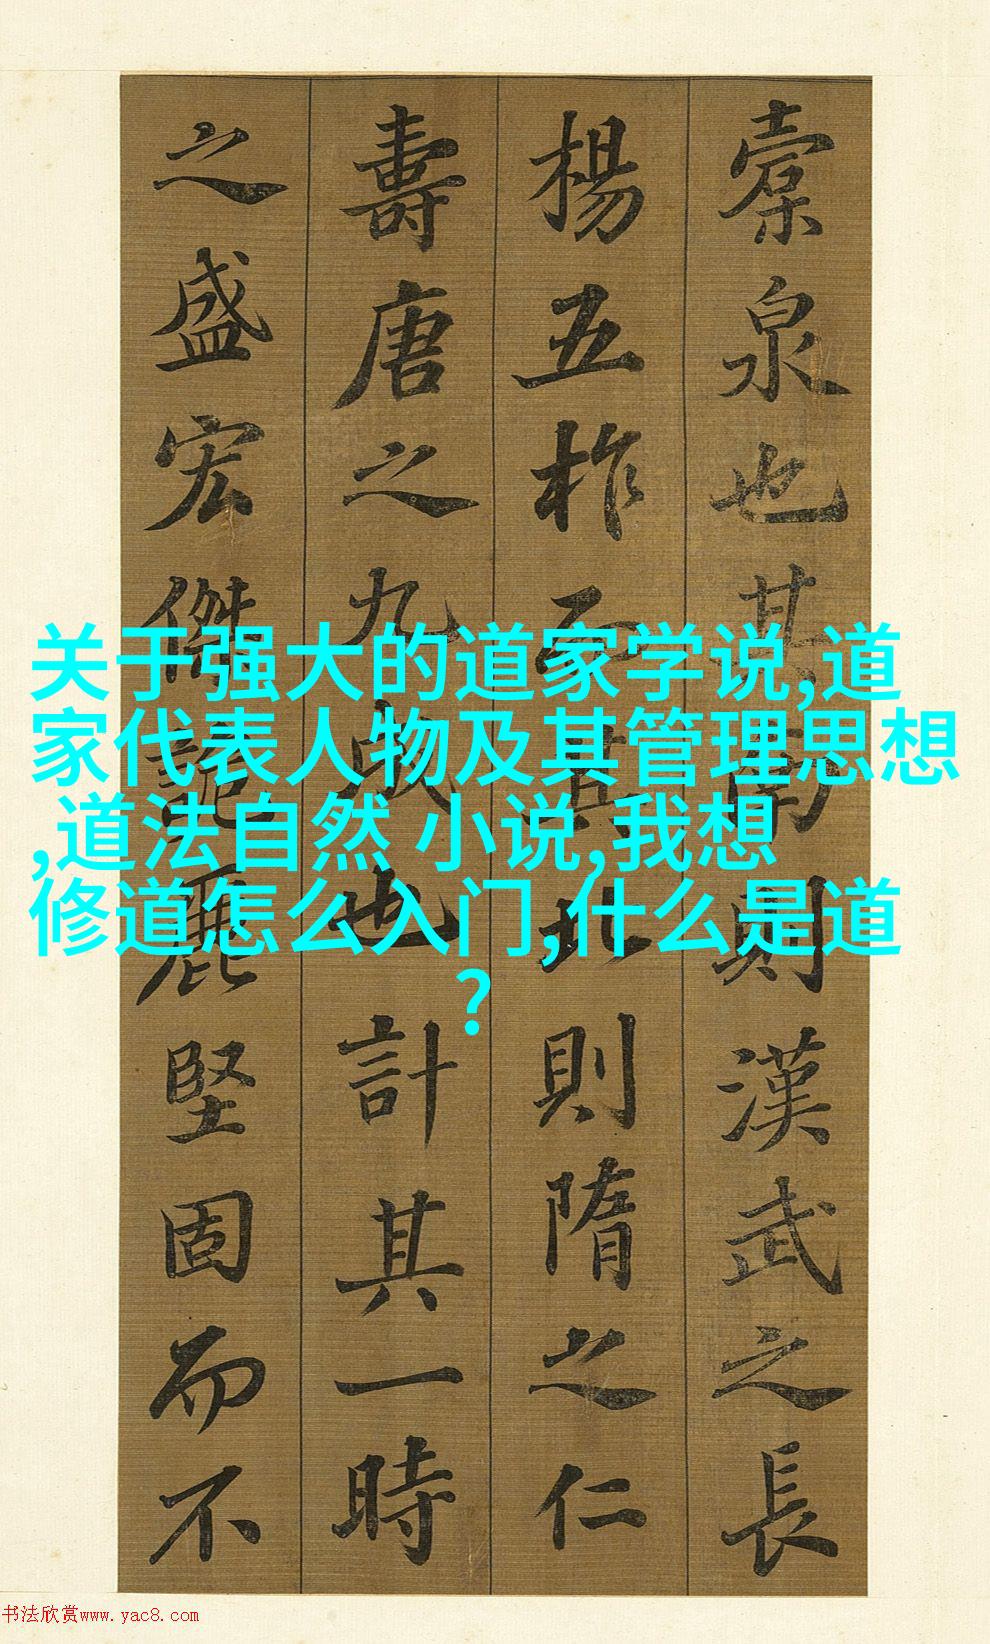 橐泉也其南則漢武之長
楊五柞而其北則隋之仁
壽唐之九成也計其一時
之盛宏傑詭麗堅固而不
关于强大的道家学说,道
家代表人物及其管理思想
,道法自然 小说,我想
修道怎么入门,什么是道
?
书法欣赏www.yac8.com